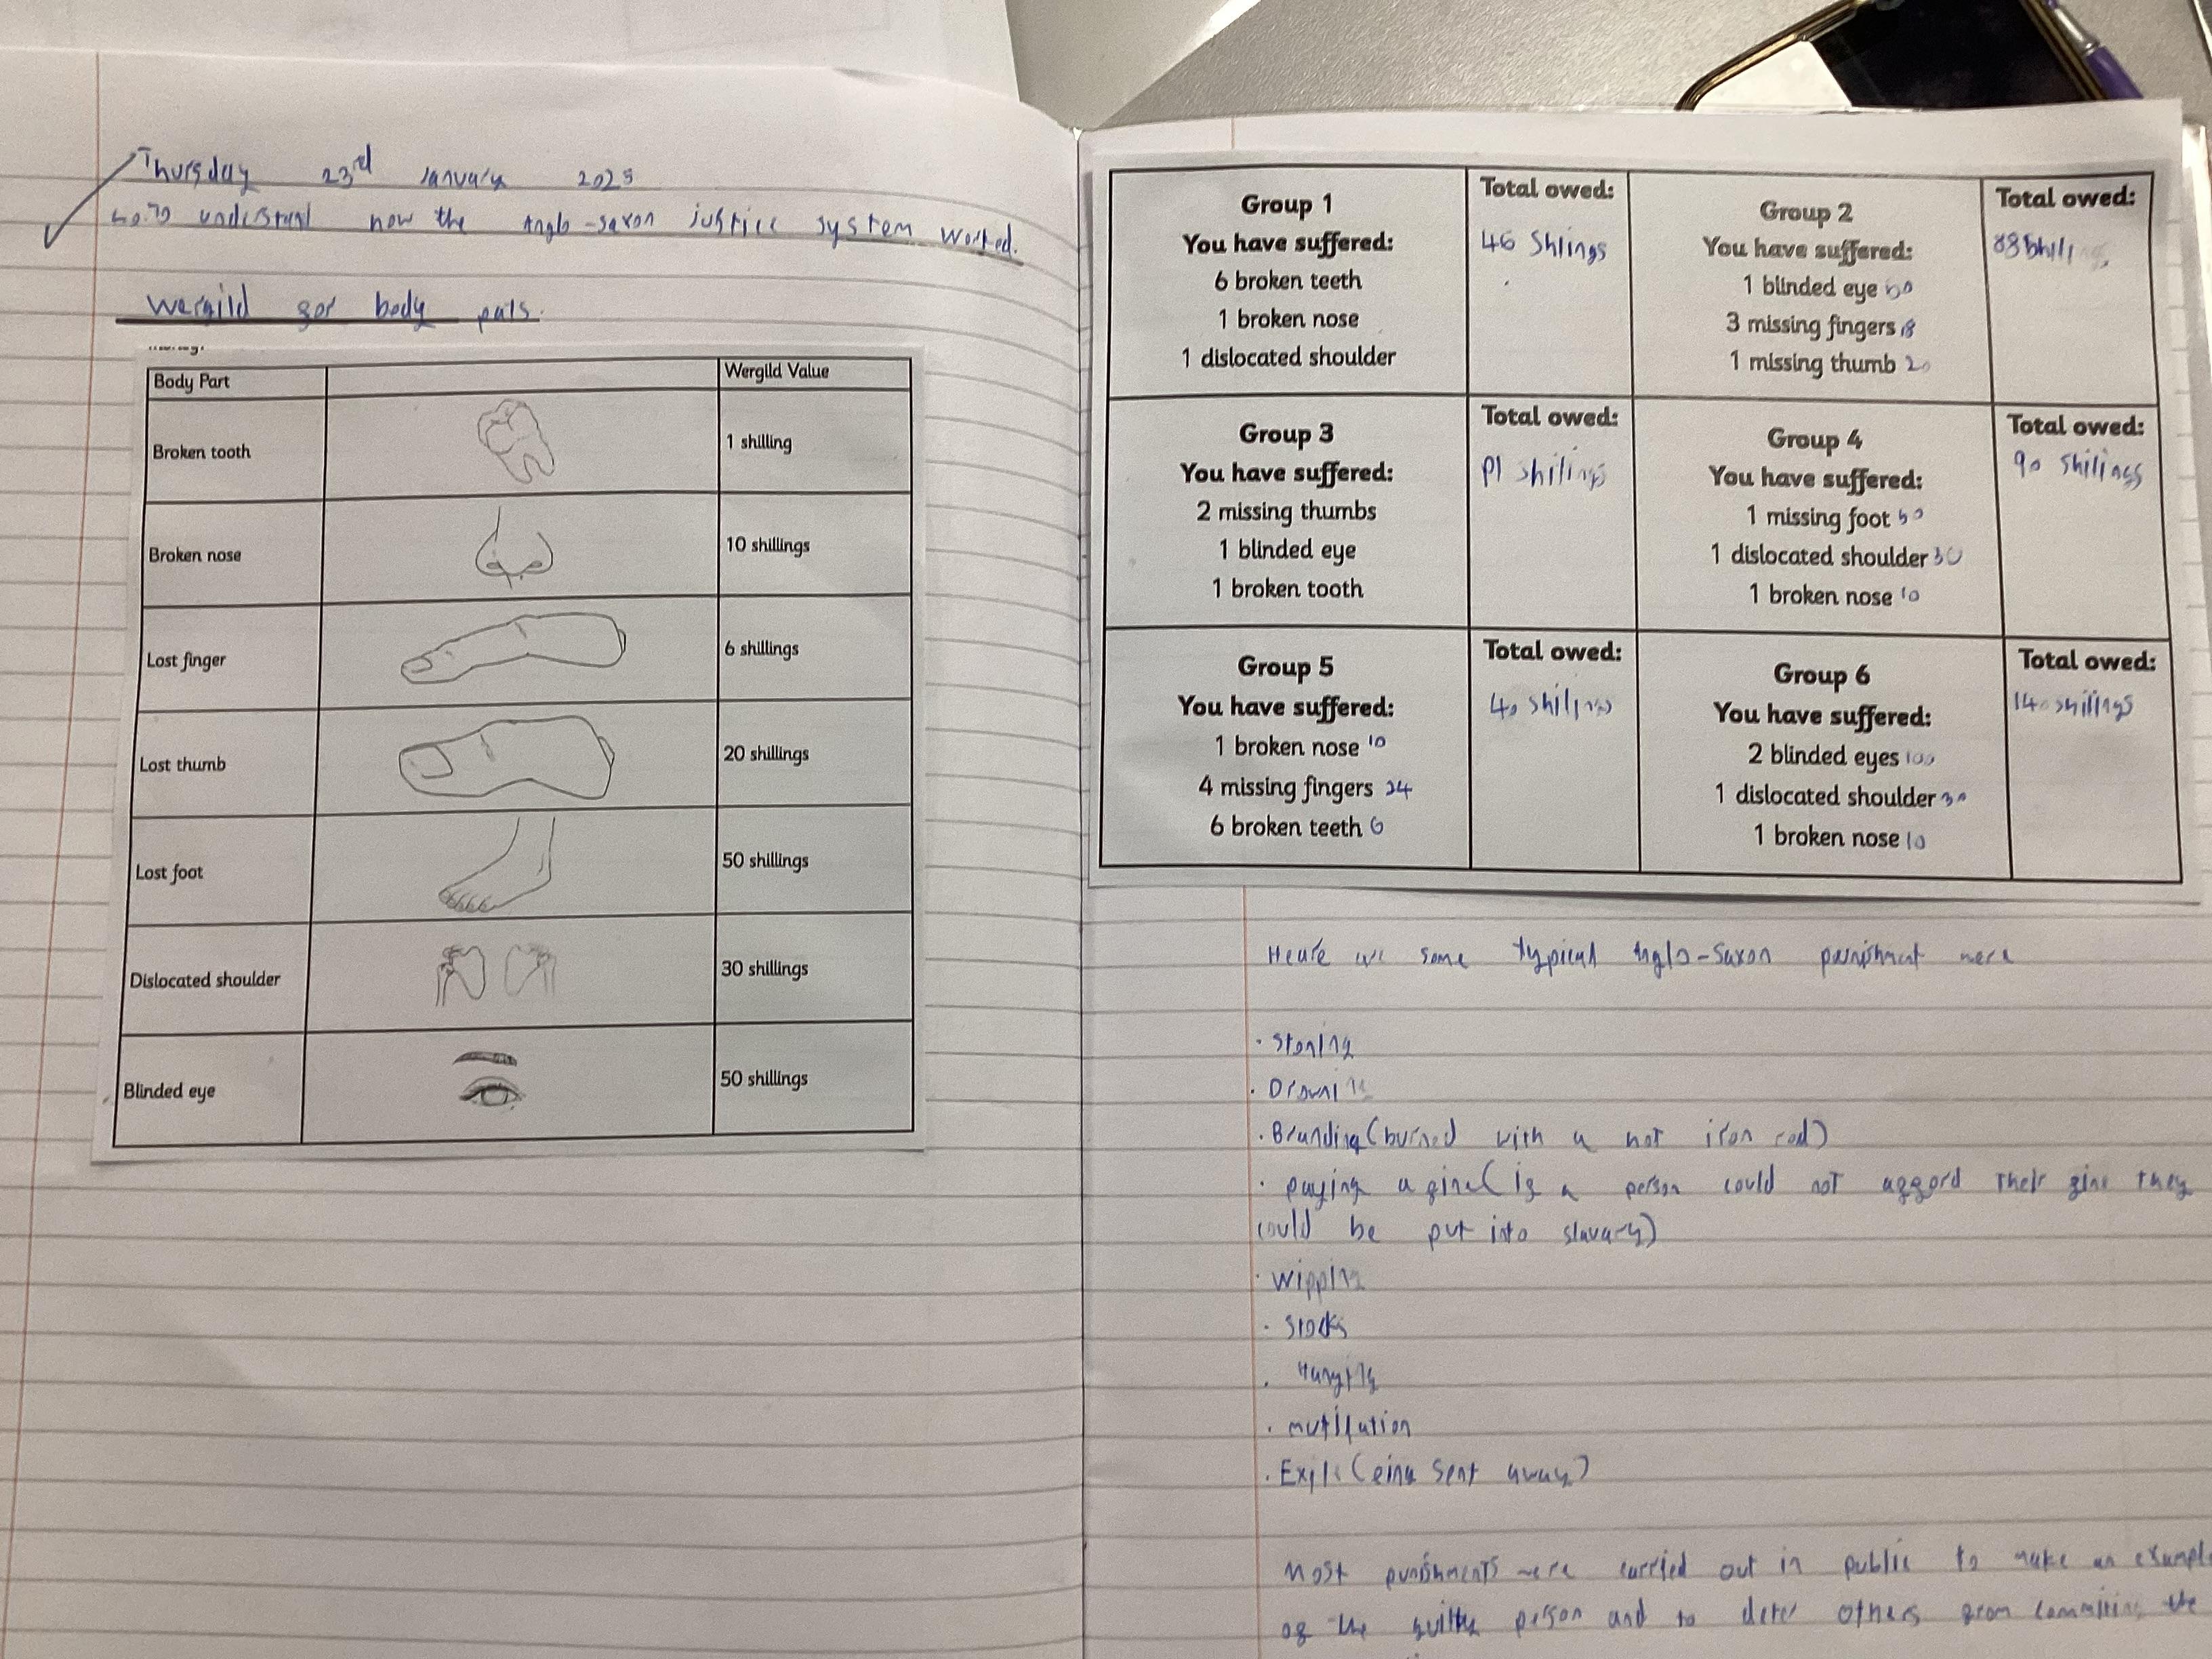 Thursday 23rd January 2025
L.O. To understant how the Anglo-saxon justice system worked.
Wergild gor body pats.
Body Part
Wergild Value
Broken tooth
1 shilling
Broken nose
10 shillings
Lost finger
6 shillings
Lost thumb
20 shillings
Lost foot
50 shillings
Dislocated shoulder
30 shillings
Blinded eye
50 shillings
Group 1
You have suffered:
6 broken teeth
1 broken nose
1 dislocated shoulder
Total owed:
46 Shlings
Group 2
You have suffered:
1 blinded eye 50
3 missing fingers 18
1 missing thumb 20
Total owed:
88
Group 3
You have suffered:
2 missing thumbs
1 blinded eye
1 broken tooth
Total owed:
91 shilings
Group 4
You have suffered:
1 missing foot 50
1 dislocated shoulder 30
1 broken nose 10
Total owed:
90 shilings
Group 5
You have suffered:
1 broken nose 10
4 missing fingers 24
6 broken teeth 6
Total owed:
40 shilings
Group 6
You have suffered:
2 blinded eyes 100
1 dislocated shoulder 30
1 broken nose 10
Total owed:
140 shillings
some typical Anglo-Saxon punishment were
· Stoning
· Branding (burned with a hot iron rod)
· paying a gine (ig a person could not aggord their gine they
could be put into slavary)
· wipping
· Stocks
· Hanging
· mutilation
· Exile (eing sent away)
Most punishments were carried out in public to make an example
og the guilty person and to deter others grom commiting the